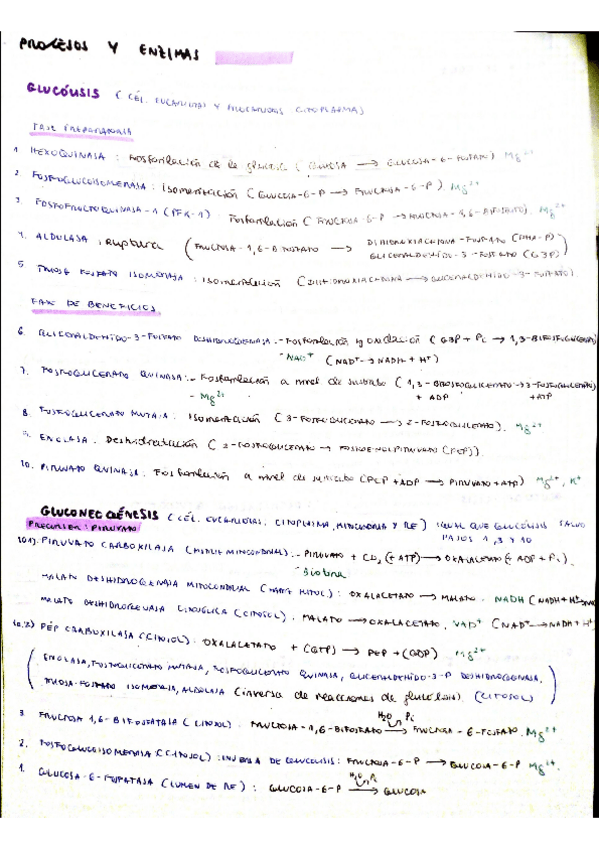 PROCESOS Y ENZIMAS
GLUCÓLISIS (CÉL. EUCARIOTAS Y PROCARIOTAS CITOPLASMA)
FASE PREPARATORIA
1. HEXOQUINASA: Fosforilación de la glucosa (GLUCOSA → GLUCOSA-6-FOSFATO) Mg2+
2. FOSFOGLUCOISOMERASA: Isomerización (GLUCOSA-6-P → FRUCTOSA-6-P). Mg2+
3. FOSFOFRUCTOQUINASA-1 (PFK-1): Fosforilación (FRUCTOSA-6-P → FRUCTOSA-1,6-BIFOSFATO). Mg2+
4. ALDOLASA: ruptura (FRUCTOSA-1,6-BIFOSFATO → DIHIDROXIACETONA-FOSFATO (DHA-P)
GLICERALDEHÍDO-3-FOSFATO (G3P))
5. TRIOSA FOSFATO ISOMERASA: Isomerización (DIHIDROXIACETONA → GLICERALDEHÍDO-3-FOSFATO).
FASE DE BENEFICIOS
6. GLICERALDEHÍDO-3-FOSFATO DESHIDROGENASA: - Fosforilación y oxidación (G3P + Pi → 1,3-BIFOSFOGLICERATO)
- NAD+ (NAD+ → NADH + H+)
7. FOSFOGLICERATO QUINASA: - Fosforilación a nivel de sustrato (1,3-BIFOSFOGLICERATO → 3-FOSFOGLICERATO)
- Mg2+ + ADP +ATP
8. FOSFOGLICERATO MUTASA: Isomerización (3-FOSFOGLICERATO → 2-FOSFOGLICERATO). Mg2+
9. ENOLASA. Deshidratación (2-FOSFOGLICERATO → FOSFOENOLPIRUVATO (PEP)).
10. PIRUVATO QUINASA: Fosforilación a nivel de sustrato (PEP + ADP → PIRUVATO + ATP) Mg2+, K+
GLUCONEOGÉNESIS (CÉL. EUCARIOTAS, CITOPLASMA, MITOCONDRIA Y RE) IGUAL QUE GLUCÓLISIS SALVO
PRECURSOR: PIRUVATO PASOS 1, 3 Y 10
10.1). PIRUVATO CARBOXILASA (MATRIZ MITOCONDRIAL): - PIRUVATO + CO2 (+ ATP) → OXALACETATO (+ ADP + Pi).
- Biotina
MALATO DESHIDROGENASA MITOCONDRIAL (MATRIZ MITOC.): OXALACETATO → MALATO. NADH (NADH + H+ → NAD
MALATO DESHIDROGENASA CITOSÓLICA (CITOSOL). MALATO → OXALACETATO. NAD+ (NAD+ → NADH + H
10.2) PEP CARBOXILASA (CITOSOL): OXALACETATO + (GTP) → PEP + (GDP). Mg2+
(ENOLASA, FOSFOGLICERATO MUTASA, FOSFOGLICERATO QUINASA, GLICERALDEHÍDO-3-P DESHIDROGENASA,
TRIOSA-FOSFATO ISOMERASA, ALDOLASA (inversa de reacciones de glucólisis). (CITOSOL))
3. FRUCTOSA 1,6-BIFOSFATASA (CITOSOL): FRUCTOSA-1,6-BIFOSFATO → FRUCTOSA-6-FOSFATO. Mg2+
H2O Pi
2. FOSFOGLUCOISOMERASA (CITOSOL): INVERSA DE GLUCOLISIS: FRUCTOSA-6-P → GLUCOSA-6-P Mg2+.
1. GLUCOSA-6-FOSFATASA (LUMEN DE RE): GLUCOSA-6-P → GLUCOSA
H2O Pi